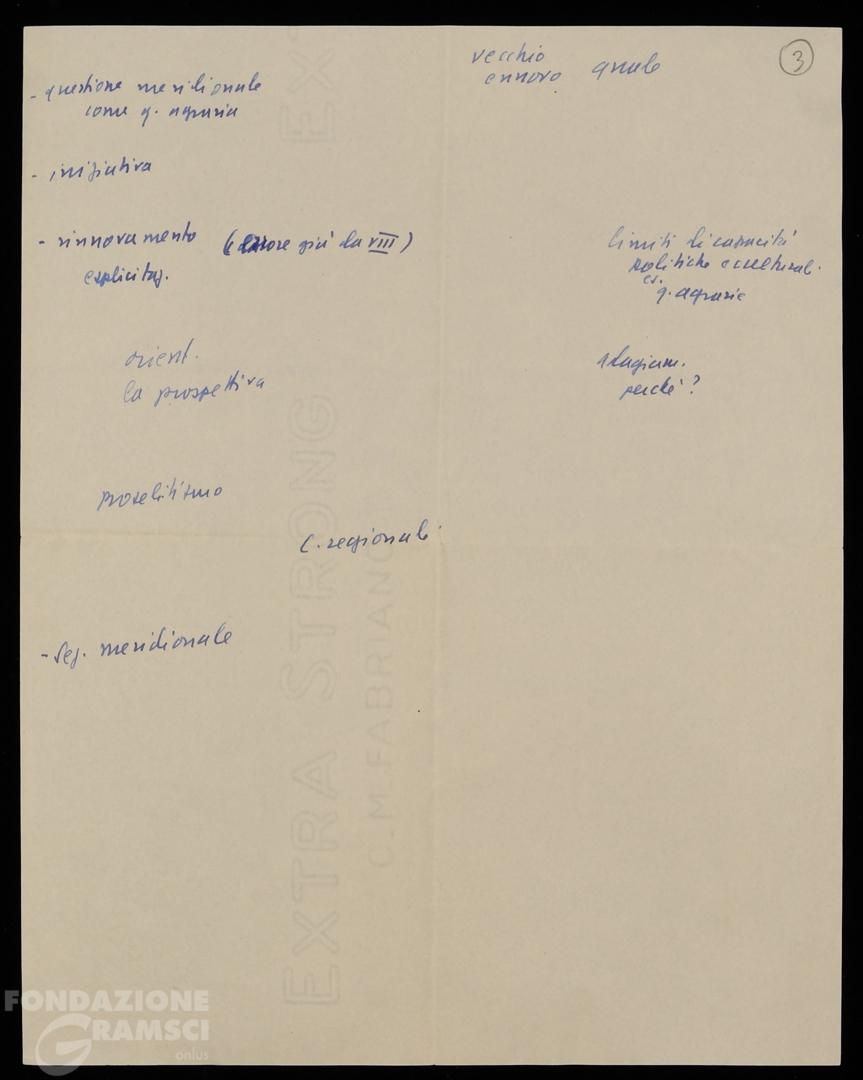 3
vecchio
e nuovo quale
- questione meridionale
come q. agraria
- iniziativa
- rinnovamento ( già da VIII)
esplicitaz.
limiti di capacità
politiche e culturali
es.
q. agraria
orient.
la prospettiva
adagiam.
perché?
proselitismo
C. regionali
- Seg. meridionale
EXTRA STRONG EX
C.M.FABRIANO
FONDAZIONE
GRAMSCI
onlus